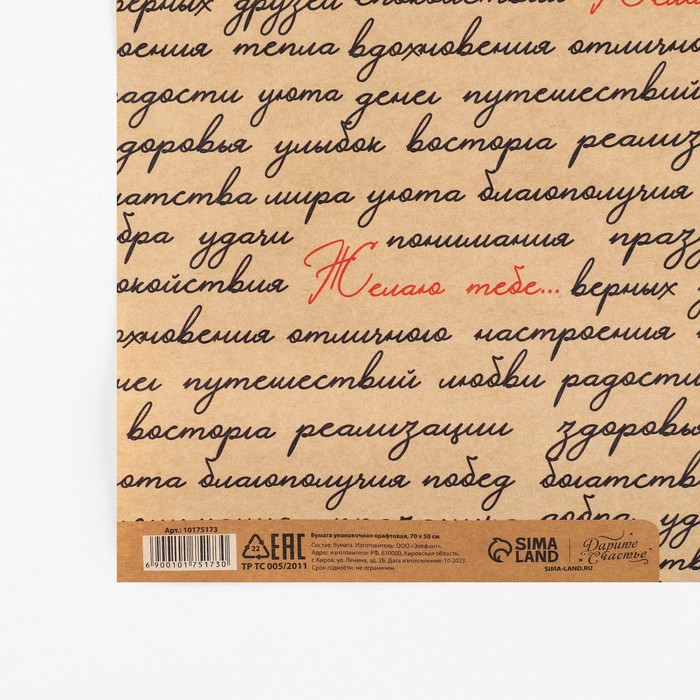 верных друзей спокойствия Желаю
оения тепла вдохновения отлично
радости уюта денег путешествий
здоровья улыбок восторга реализ
гатства мира уюта благополучия
бра удачи понимания праз
окойствия Желаю тебе... верных
охновения отличного настроения
нег путешествий любви радости
восторга реализации здоровья
юта благополучия побед богатств
добра уд
Арт.: 10175173
6 900101 751730
22
EAC
ТР ТС 005/2011
Бумага упаковочная крафтовая, 70 х 50 см
Состав: бумага. Изготовитель: ООО «Элефант».
Адрес изготовителя: РФ, 610000, Кировская область,
г. Киров, ул. Ленина, зд. 2Б. Дата изготовления: 10.2023
Срок годности: не ограничен.
SIMA
LAND
SIMA-LAND.RU
Дарите
Счастье